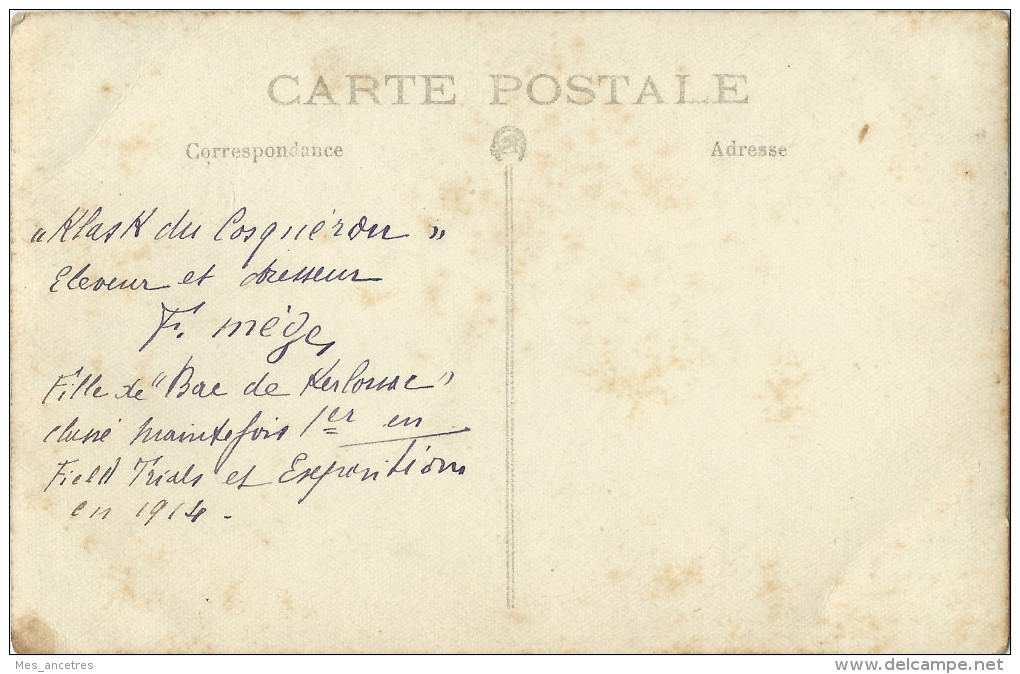 CARTE POSTALE
Correspondance
Adresse
"Klask du Cosquérou"
Eleveur et dresseur
F. Mège,
Fille de "Bac de Kerlouac"
classé maintefois 1er en
Field Trials et Expositions
en 1914.
Mes_ancetres
www.delcampe.net